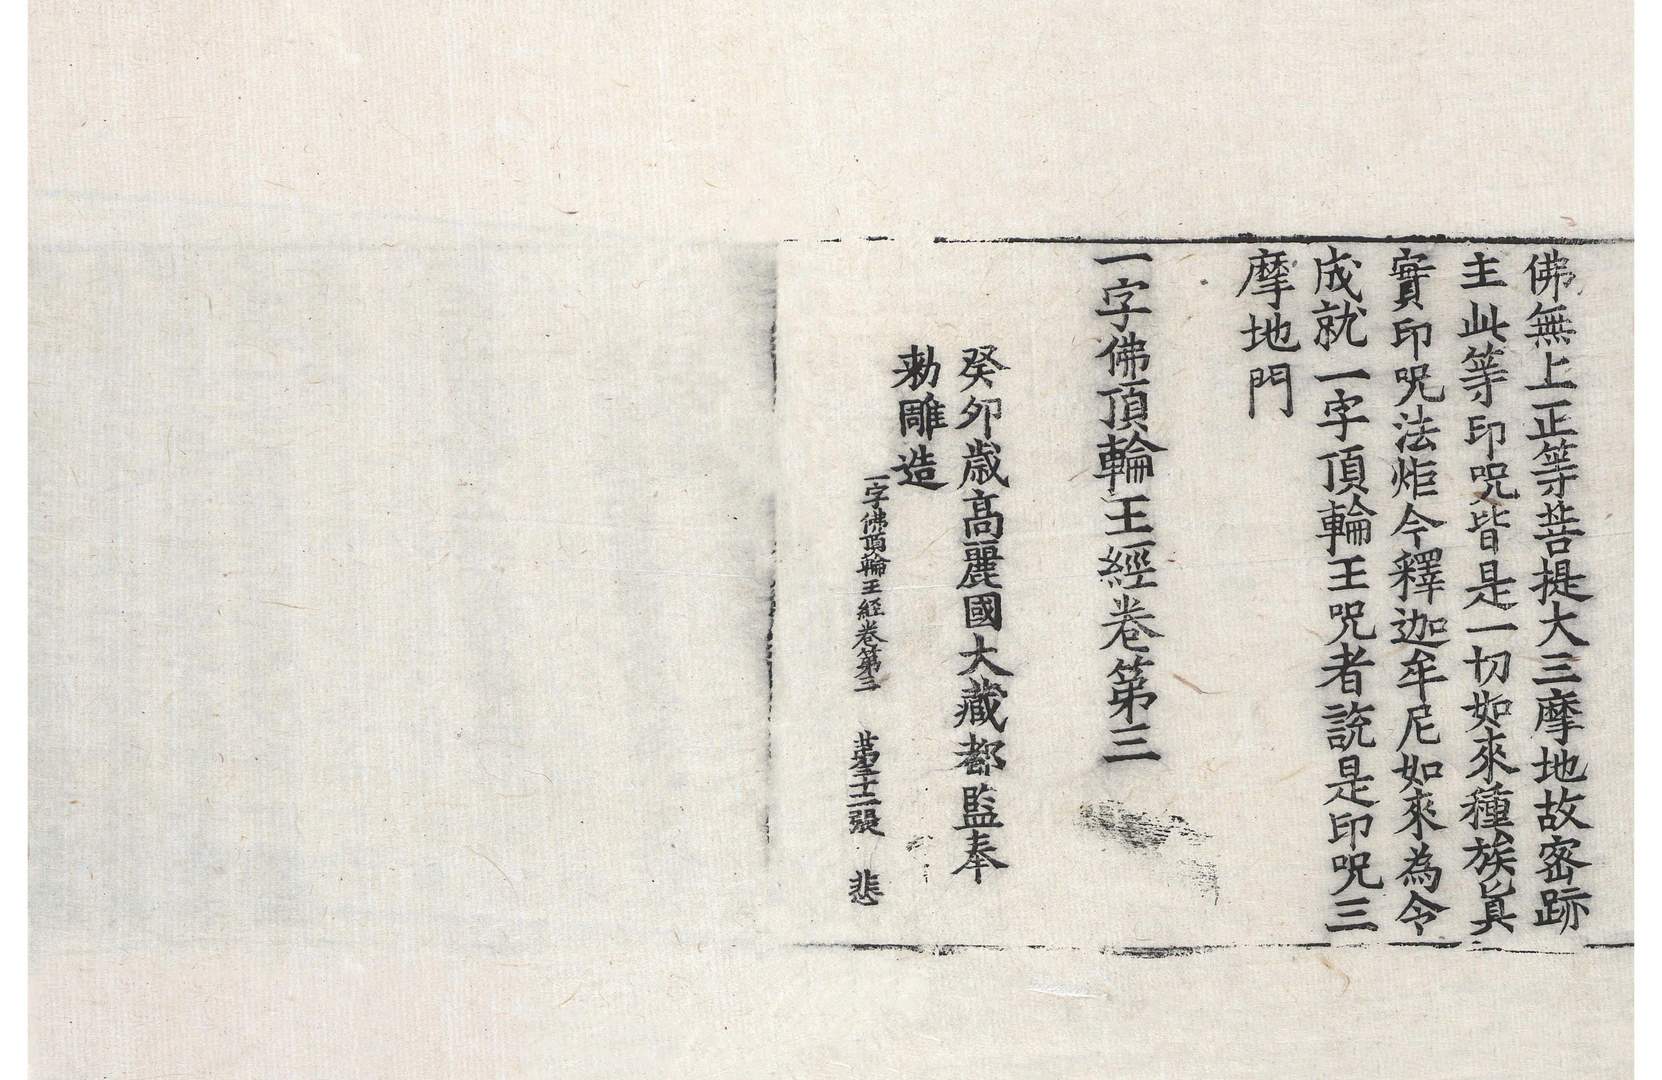 佛無上正等菩提大三摩地故密跡
主此等印呪皆是一切如來種族真
實印呪法炬今釋迦牟尼如來為令
成就一字頂輪王呪者說是印呪三
摩地門
一字佛頂輪王經卷第三
癸卯歲高麗國大藏都監奉
勅雕造
一字佛頂輪王經卷第三 第三十二張 悲